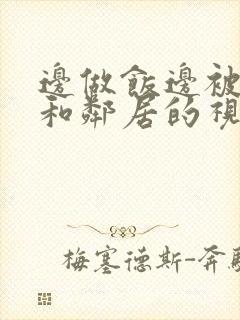 邊做飯邊被
和鄰居的視
梅塞德斯-奔馳